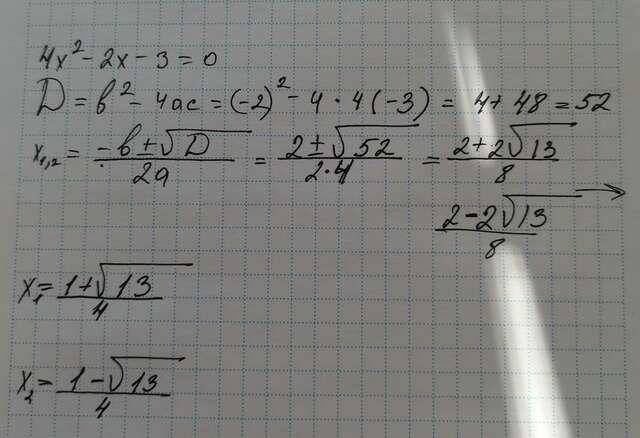 4x² - 2x - 3 = 0
D = b² - 4ac = (-2)² - 4 · 4(-3) = 4 + 48 = 52
x₁,₂ = (-b ± √D)/2a = (2 ± √52)/2·4 = (2 + 2√13)/8
(2 - 2√13)/8 →
x₁ = (1 + √13)/4
x₂ = (1 - √13)/4